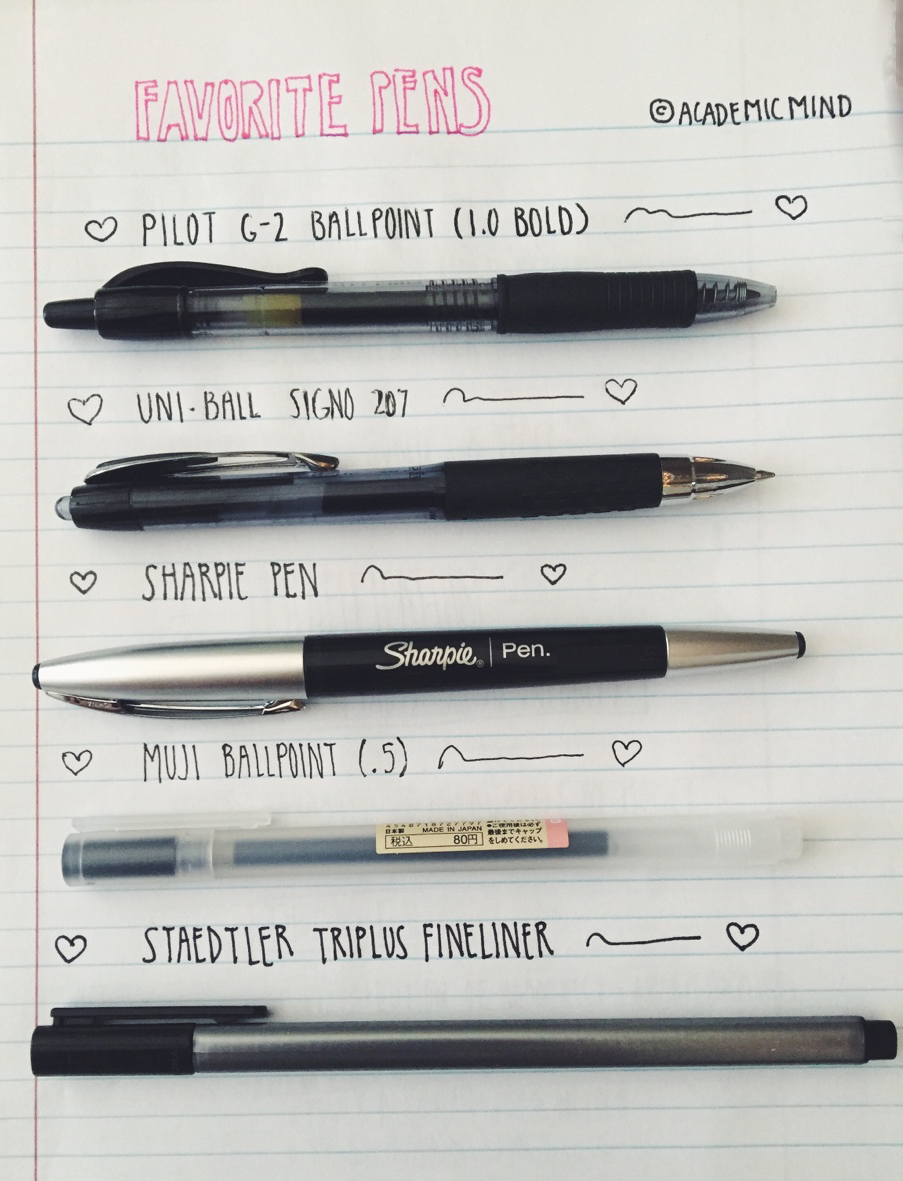 FAVORITE PENS
©ACADEMICMIND
PILOT G-2 BALLPOINT (1.0 BOLD)
UNI-BALL SIGNO 207
SHARPIE PEN
Sharpie® | Pen.
MUJI BALLPOINT (.5)
日本製 MADE IN JAPAN
税込 80円
●ご使用後は必ず
最後までキャップ
をしめてください。
STAEDTLER TRIPLUS FINELINER